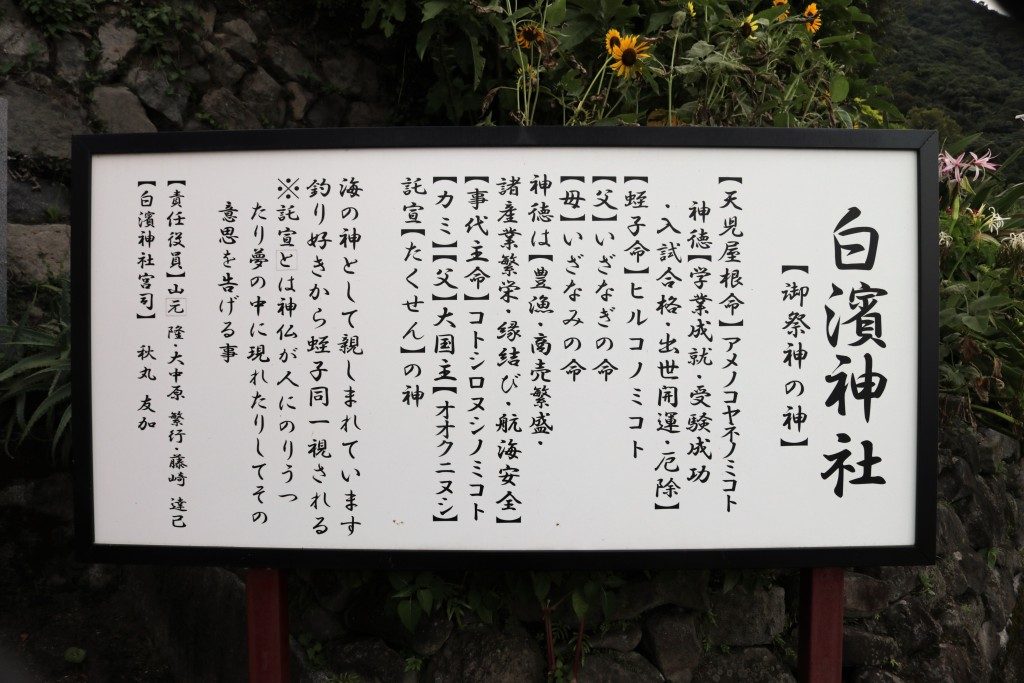 白濱神社
【御祭神の神】
【天児屋根命】アメノコヤネノミコト
神徳【学業成就・受験成功
・入試合格・出世・開運・厄除】
【蛭子命】ヒルコノミコト
【父】いざなぎの命
【母】いざなみの命
神徳は【豊漁・商売繁盛・
諸産業繁栄・縁結び・航海安全】
【事代主命】コトシロヌシノミコト
【カミ】【父】大国主【オオクニヌシ】
託宣【たくせん】の神
海の神として親しまれています
釣り好きから蛭子同一視される
※託宣とは神仏が人にのりうつ
たり夢の中に現れたりしてその
意思を告げる事
【責任役員】山元 隆・大中原 繁行・藤崎 達己
【白濱神社宮司】 秋丸 友加